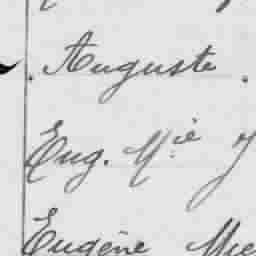 Auguste.
Eug. Mie J
Eugène Mie